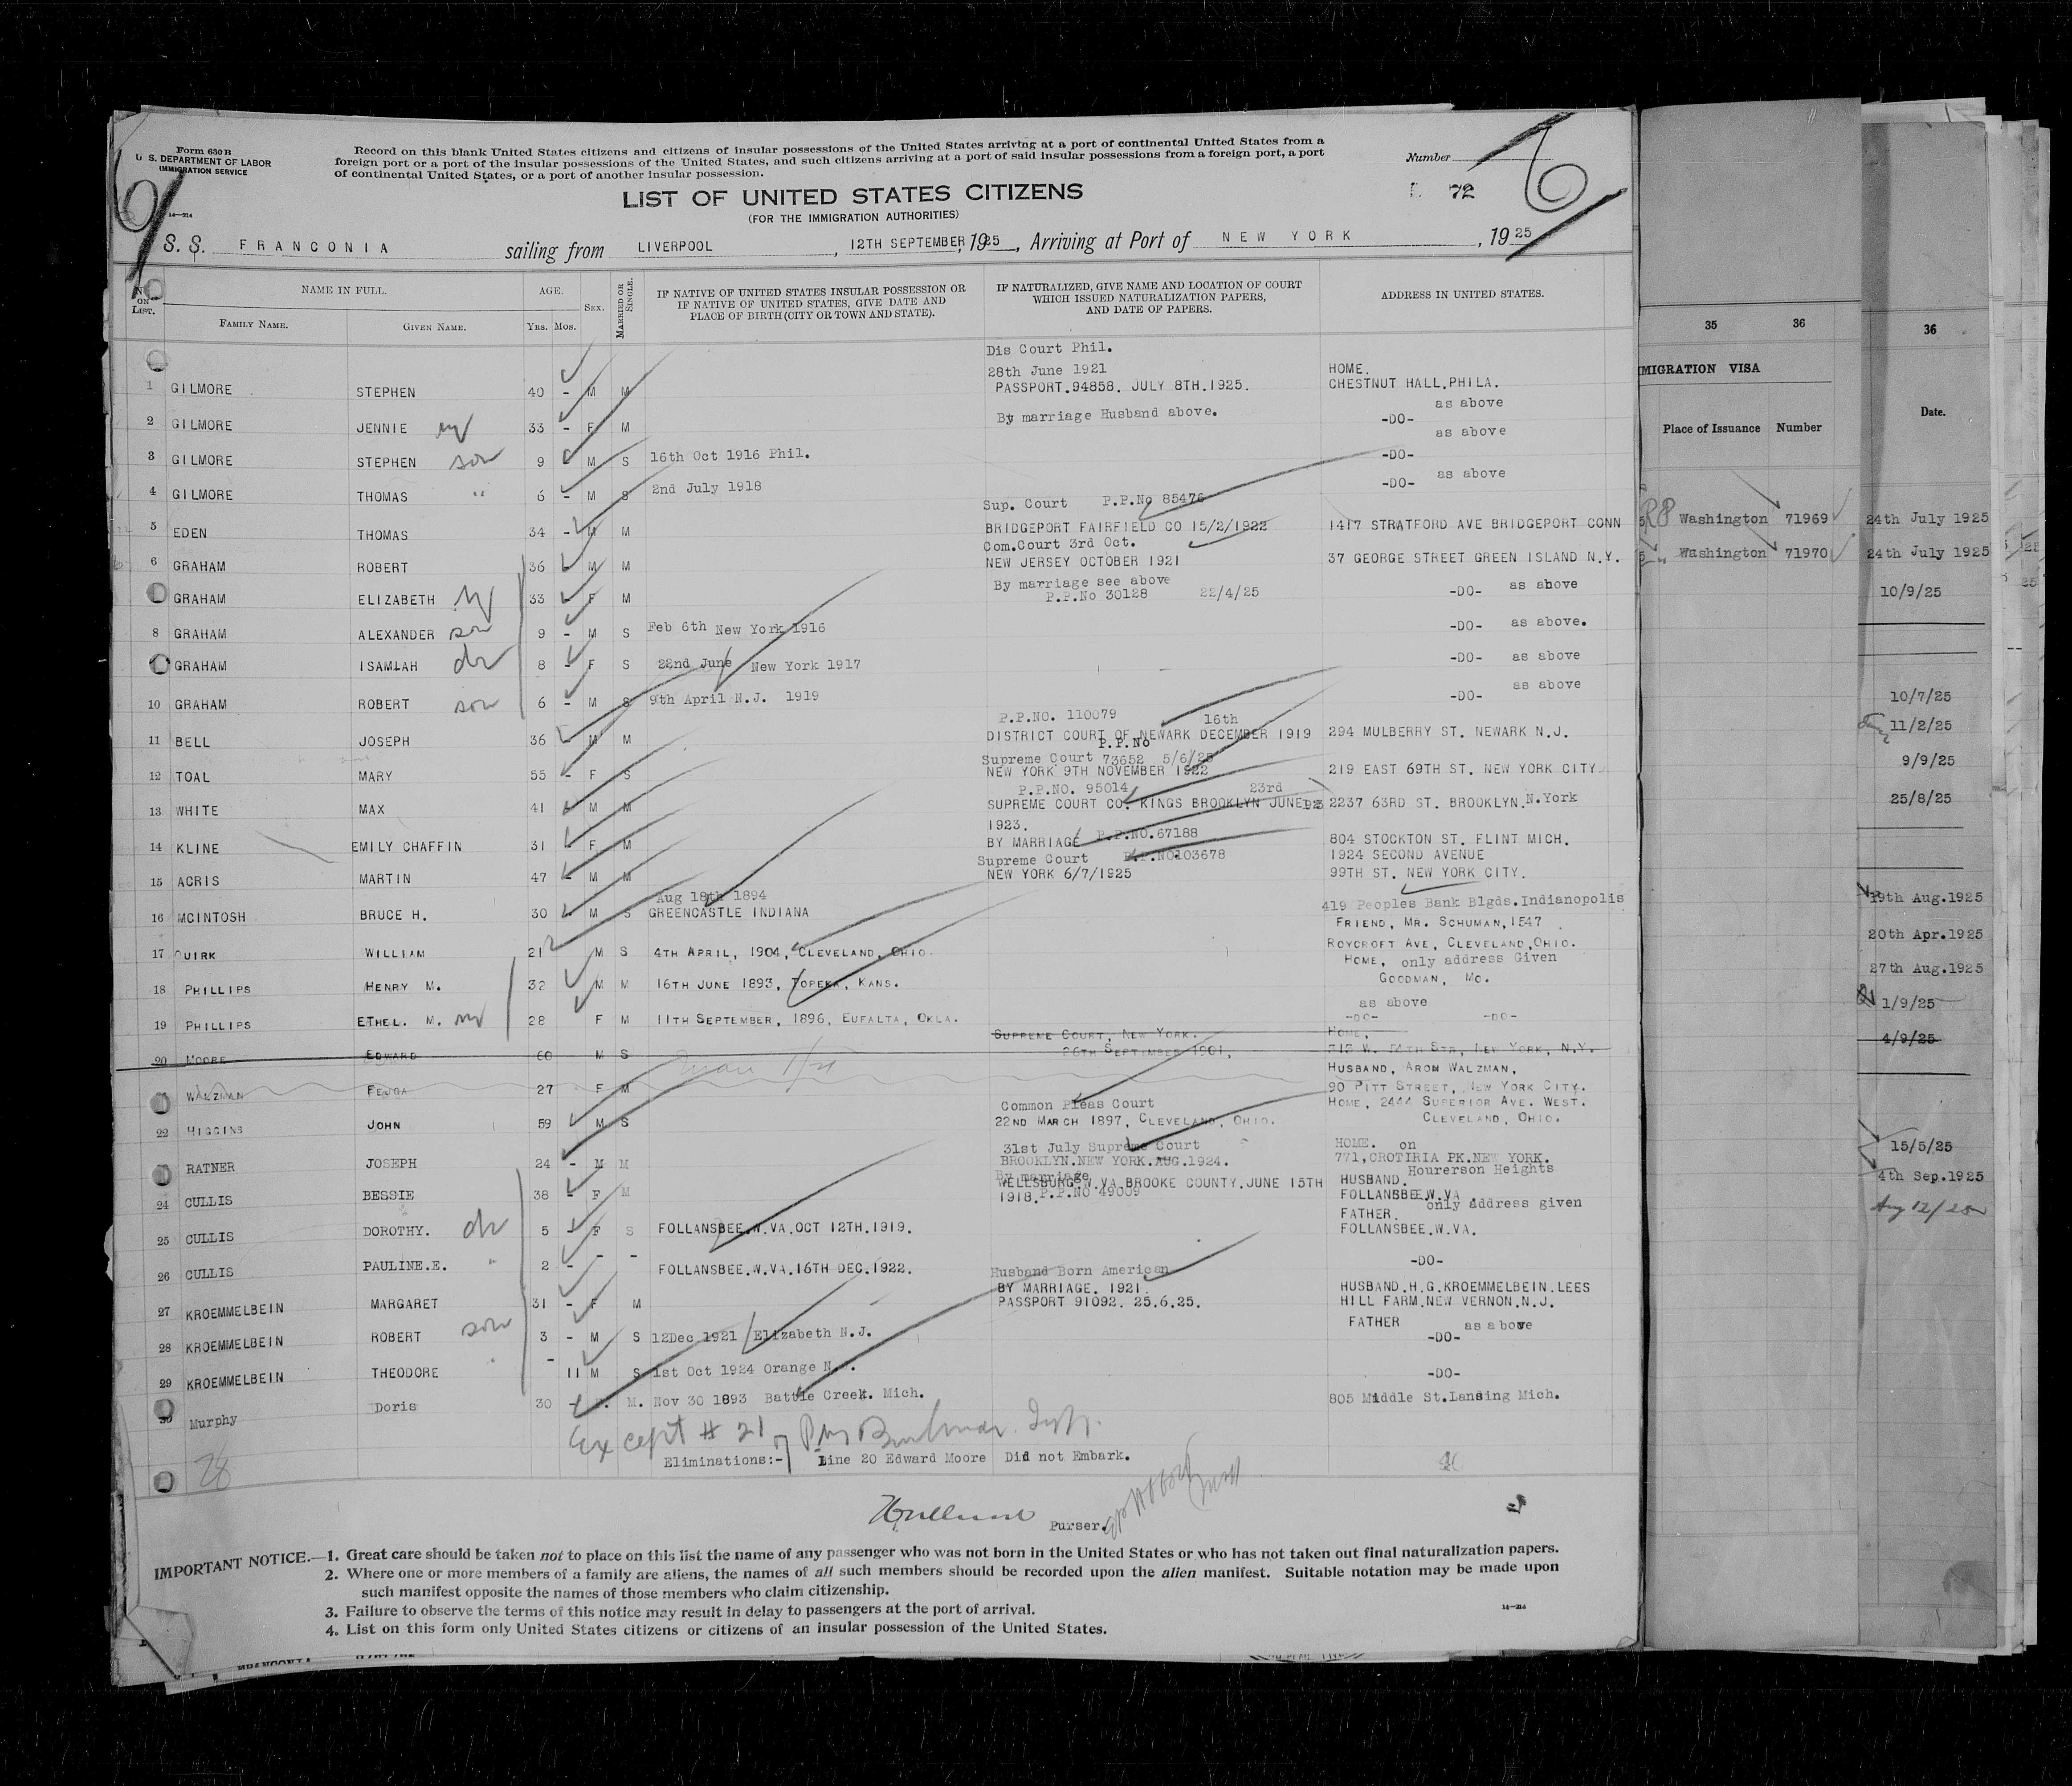 Form 630 B
U. S. DEPARTMENT OF LABOR
IMMIGRATION SERVICE
14—214
Record on this blank United States citizens and citizens of insular possessions of the United States arriving at a port of continental United States from a
foreign port or a port of the insular possessions of the United States, and such citizens arriving at a port of said insular possessions from a foreign port, a port
of continental United States, or a port of another insular possession.
Number
6
72
LIST OF UNITED STATES CITIZENS
(FOR THE IMMIGRATION AUTHORITIES)
S. S. FRANCONIA sailing from LIVERPOOL, 12TH SEPTEMBER, 1925, Arriving at Port of NEW YORK, 1925
No. ON LIST. NAME IN FULL. AGE. SEX. MARRIED OR SINGLE. IF NATIVE OF UNITED STATES INSULAR POSSESSION OR IF NATIVE OF UNITED STATES, GIVE DATE AND PLACE OF BIRTH (CITY OR TOWN AND STATE). IF NATURALIZED, GIVE NAME AND LOCATION OF COURT WHICH ISSUED NATURALIZATION PAPERS, AND DATE OF PAPERS. ADDRESS IN UNITED STATES.
FAMILY NAME. GIVEN NAME. YRS. MOS.
Dis Court Phil.
28th June 1921 HOME.
1 GILMORE STEPHEN 40 - M M PASSPORT.94858. JULY 8TH.1925. CHESTNUT HALL.PHILA.
as above
2 GILMORE JENNIE wf 33 - F M By marriage Husband above. -DO-
as above
3 GILMORE STEPHEN son 9 - M S 16th Oct 1916 Phil. -DO-
as above
4 GILMORE THOMAS " 6 - M S 2nd July 1918 -DO-
Sup. Court P.P.No 85476
5 EDEN THOMAS 34 - M M BRIDGEPORT FAIRFIELD CO 15/2/1922 1417 STRATFORD AVE BRIDGEPORT CONN
Com.Court 3rd Oct.
6 GRAHAM ROBERT 36 - M M NEW JERSEY OCTOBER 1921 37 GEORGE STREET GREEN ISLAND N.Y.
By marriage see above
GRAHAM ELIZABETH wf 33 - F M P.P.No 30128 22/4/25 -DO- as above
8 GRAHAM ALEXANDER son 9 - M S Feb 6th New York 1916 -DO- as above.
GRAHAM ISAMLAH dr 8 - F S 22nd June New York 1917 -DO- as above
10 GRAHAM ROBERT son 6 - M S 9th April N.J. 1919 -DO- as above
P.P.NO. 110079 16th
11 BELL JOSEPH 36 - M M DISTRICT COURT OF NEWARK DECEMBER 1919 294 MULBERRY ST. NEWARK N.J.
P.P.No
Supreme Court 73652 5/6/25
12 TOAL MARY 55 - F S NEW YORK 9TH NOVEMBER 1922 219 EAST 69TH ST. NEW YORK CITY.
P.P.NO. 95014 23rd
13 WHITE MAX 41 - M M SUPREME COURT CO. KINGS BROOKLYN JUNE 2237 63RD ST. BROOKLYN.N.York
1923.
14 KLINE EMILY CHAFFIN 31 - F M BY MARRIAGE P.P.NO.67188 804 STOCKTON ST. FLINT MICH.
Supreme Court P.P.NO103678 1924 SECOND AVENUE
15 ACRIS MARTIN 47 - M M NEW YORK 6/7/1925 99TH ST. NEW YORK CITY.
Aug 18th 1894
16 MCINTOSH BRUCE H. 30 - M S GREENCASTLE INDIANA 419 Peoples Bank Blgds.Indianopolis
FRIEND, MR. SCHUMAN,1547
17 QUIRK WILLIAM 21 M S 4TH APRIL, 1904, CLEVELAND, OHIO. ROYCROFT AVE, CLEVELAND,OHIO.
HOME, only address Given
18 PHILLIPS HENRY M. 32 M M 16TH JUNE 1893, TOPEKA, KANS. GOODMAN, MO.
as above
19 PHILLIPS ETHEL. M. wf 28 F M 11TH SEPTEMBER, 1896, EUFALTA, OKLA. -DO- -DO-
SUPREME COURT, NEW YORK. HOME,
20 MOORE EDWARD 60 M S 26TH SEPTEMBER 1901, 313 W. 54TH STR, NEW YORK, N.Y.
HUSBAND, AROM WALZMAN,
WALZMAN FEJGA 27 F M 90 PITT STREET, NEW YORK CITY.
Common Pleas Court HOME, 2444 SUPERIOR AVE. WEST.
22 HIGGINS JOHN 59 M S 22ND MARCH 1897, CLEVELAND, OHIO. CLEVELAND, OHIO.
31st July Supreme Court HOME. on
RATNER JOSEPH 24 - M M BROOKLYN.NEW YORK.AUG.1924. 771,CROTIRIA PK.NEW YORK.
Hourerson Heights
By marriage
WELLSBURG.W.VA.BROOKE COUNTY.JUNE 15TH HUSBAND.
24 CULLIS BESSIE 38 - F M 1918.P.P.NO 49009 FOLLANSBEE.W.VA
only address given
FATHER.
25 CULLIS DOROTHY. dr 5 - F S FOLLANSBEE.W.VA.OCT 12TH.1919. FOLLANSBEE.W.VA.
26 CULLIS PAULINE.E. " 2 - - - FOLLANSBEE.W.VA.16TH DEC.1922. -DO-
Husband Born American
BY MARRIAGE. 1921. HUSBAND.H.G.KROEMMELBEIN.LEES
27 KROEMMELBEIN MARGARET 31 - F M PASSPORT 91092. 25.6.25. HILL FARM.NEW VERNON.N.J.
FATHER as above
28 KROEMMELBEIN ROBERT son 3 - M S 12Dec 1921 Elizabeth N.J. -DO-
29 KROEMMELBEIN THEODORE - 11 M S 1st Oct 1924 Orange N.J. -DO-
30 Murphy Doris 30 - M. Nov 30 1893 Battle Creek. Mich. 805 Middle St.Lansing Mich.
Except # 21
28 Eliminations:- Line 20 Edward Moore Did not Embark.
Purser.
IMPORTANT NOTICE.—1. Great care should be taken not to place on this list the name of any passenger who was not born in the United States or who has not taken out final naturalization papers.
2. Where one or more members of a family are aliens, the names of all such members should be recorded upon the alien manifest. Suitable notation may be made upon
such manifest opposite the names of those members who claim citizenship.
3. Failure to observe the terms of this notice may result in delay to passengers at the port of arrival.
4. List on this form only United States citizens or citizens of an insular possession of the United States.
14—214
35 36
IMMIGRATION VISA
Place of Issuance Number
Washington 71969
Washington 71970
36
Date.
24th July 1925
24th July 1925
10/9/25
10/7/25
11/2/25
9/9/25
25/8/25
19th Aug.1925
20th Apr.1925
27th Aug.1925
1/9/25
4/9/25
15/5/25
4th Sep.1925
Aug 12/25